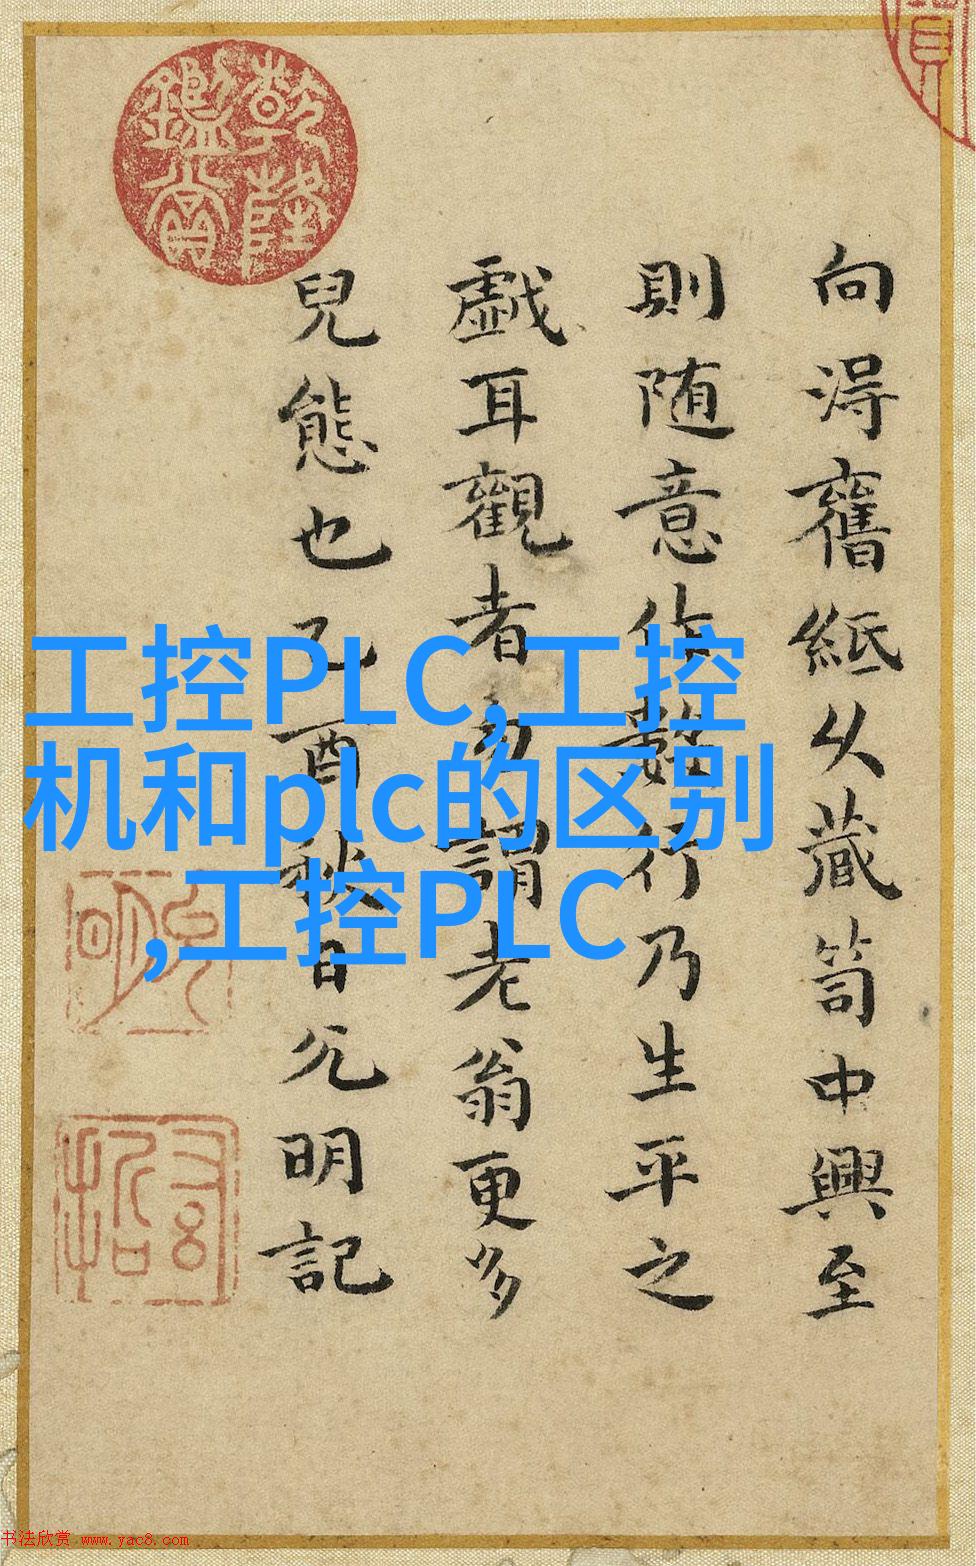 向得舊紙从藏笥中興至
則随意作數行乃生平之
戱耳觀者多謂老翁更多
兒態也己酉秋日允明記
乾隆
鑑賞
工控PLC,工控
机和plc的区别
,工控PLC
书法欣赏 www.yac8.com